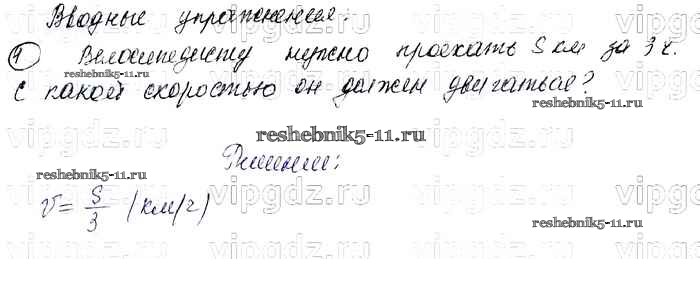 Вводные упражнения.
1 Велосипедисту нужно проехать S км за 3 ч.
С какой скоростью он должен двигаться?
reshebnik5-11.ru
reshebnik5-11.ru
reshebnik5-11.ru
Решение:
V = S/3 (км/ч)
reshebnik5-11.ru
reshebnik5-11.ru
vipgdz.ru